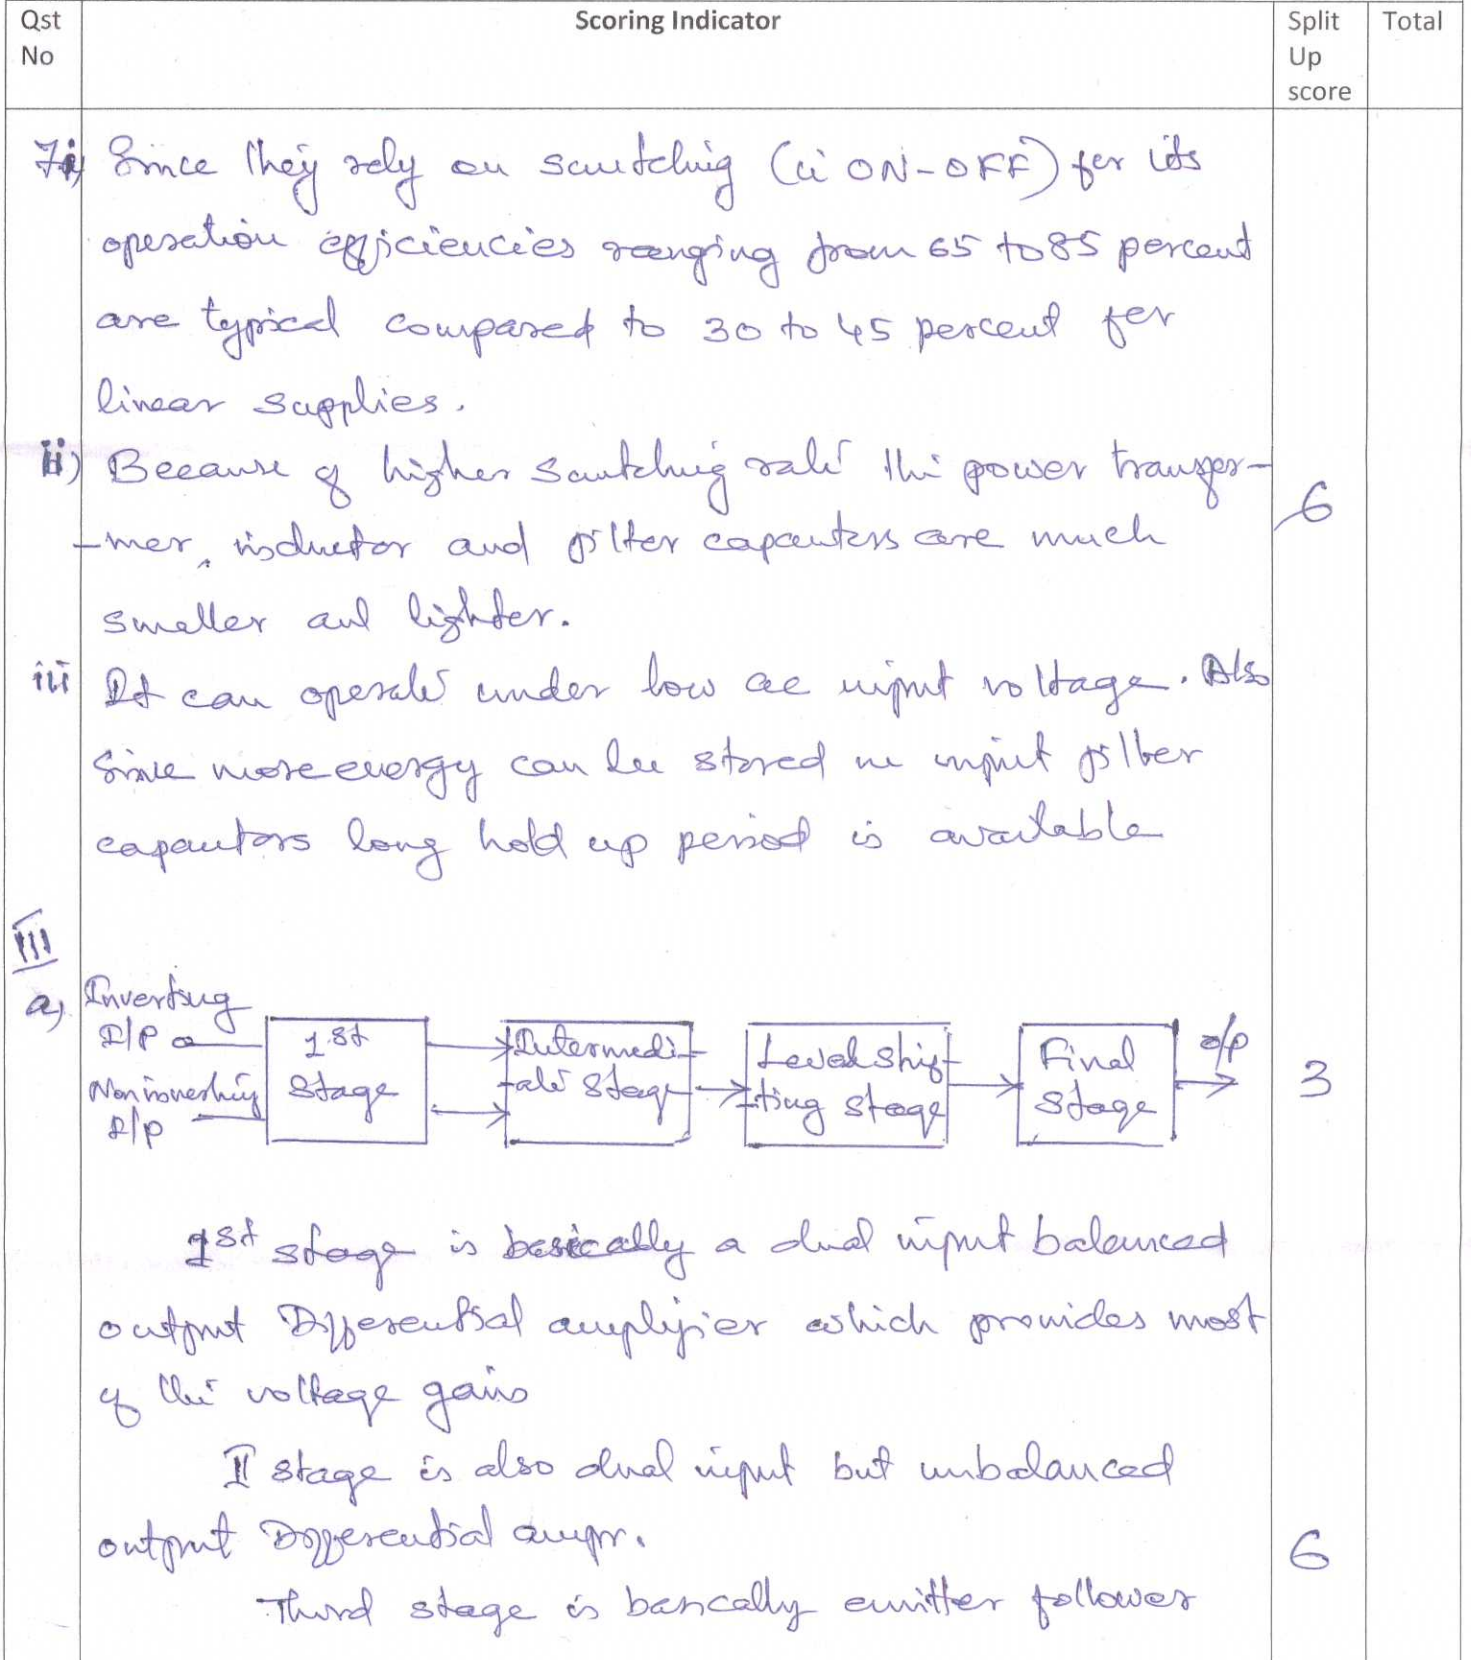 Qst No
Scoring Indicator
Split Up score
Total
7i) Since they rely on switching (ie ON-OFF) for its
operation efficiencies ranging from 65 to 85 percent
are typical compared to 30 to 45 percent for
linear supplies.
ii) Because of higher switching rate the power transfor-
-mer, inductor and filter capacitors are much
smaller and lighter.
6
iii It can operate under low ac input voltage. Also
Since more energy can be stored in input filter
capacitors long hold up period is available
III
a) Inverting
I/P
Noninverting
I/p
1st
Stage
Intermedi-
-ate Stage
Level shif-
-ting stage
Final
Stage
o/p
3
1st stage is basically a dual input balanced
output Differential amplifier which provides most
of the voltage gain
II stage is also dual input but unbalanced
output Differential ampr.
6
Third stage is basically emitter follower